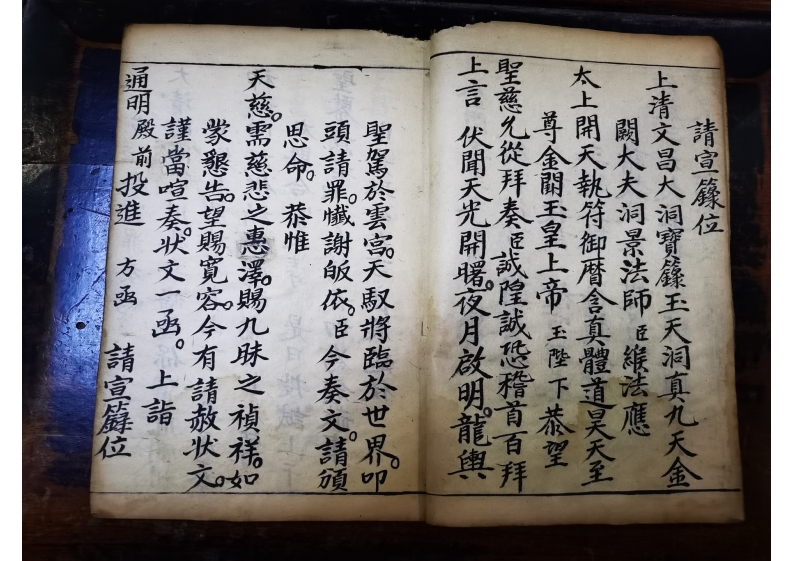 請宣籙位
上清文昌大洞寶籙玉天洞真九天金
闕大夫洞景法師臣維法應
太上開天執符御曆含真體道昊天至
尊金闕玉皇上帝 玉陛下恭望
聖慈允從拜奏臣誠隍誠恐稽首百拜
上言 伏聞天光開曙。夜月啟明。龍輿
聖駕於雲宮。天馭將臨於世界。叩
頭請罪。懺謝皈依。臣今奏文。請頒
恩命。 恭惟
天慈。需慈悲之惠澤。賜九昧之禎祥。如
蒙懇告。望賜寬容。今有請赦狀文。
謹當喧奏。狀文一函。上詣
通明殿前投進 方函 請宣籙位